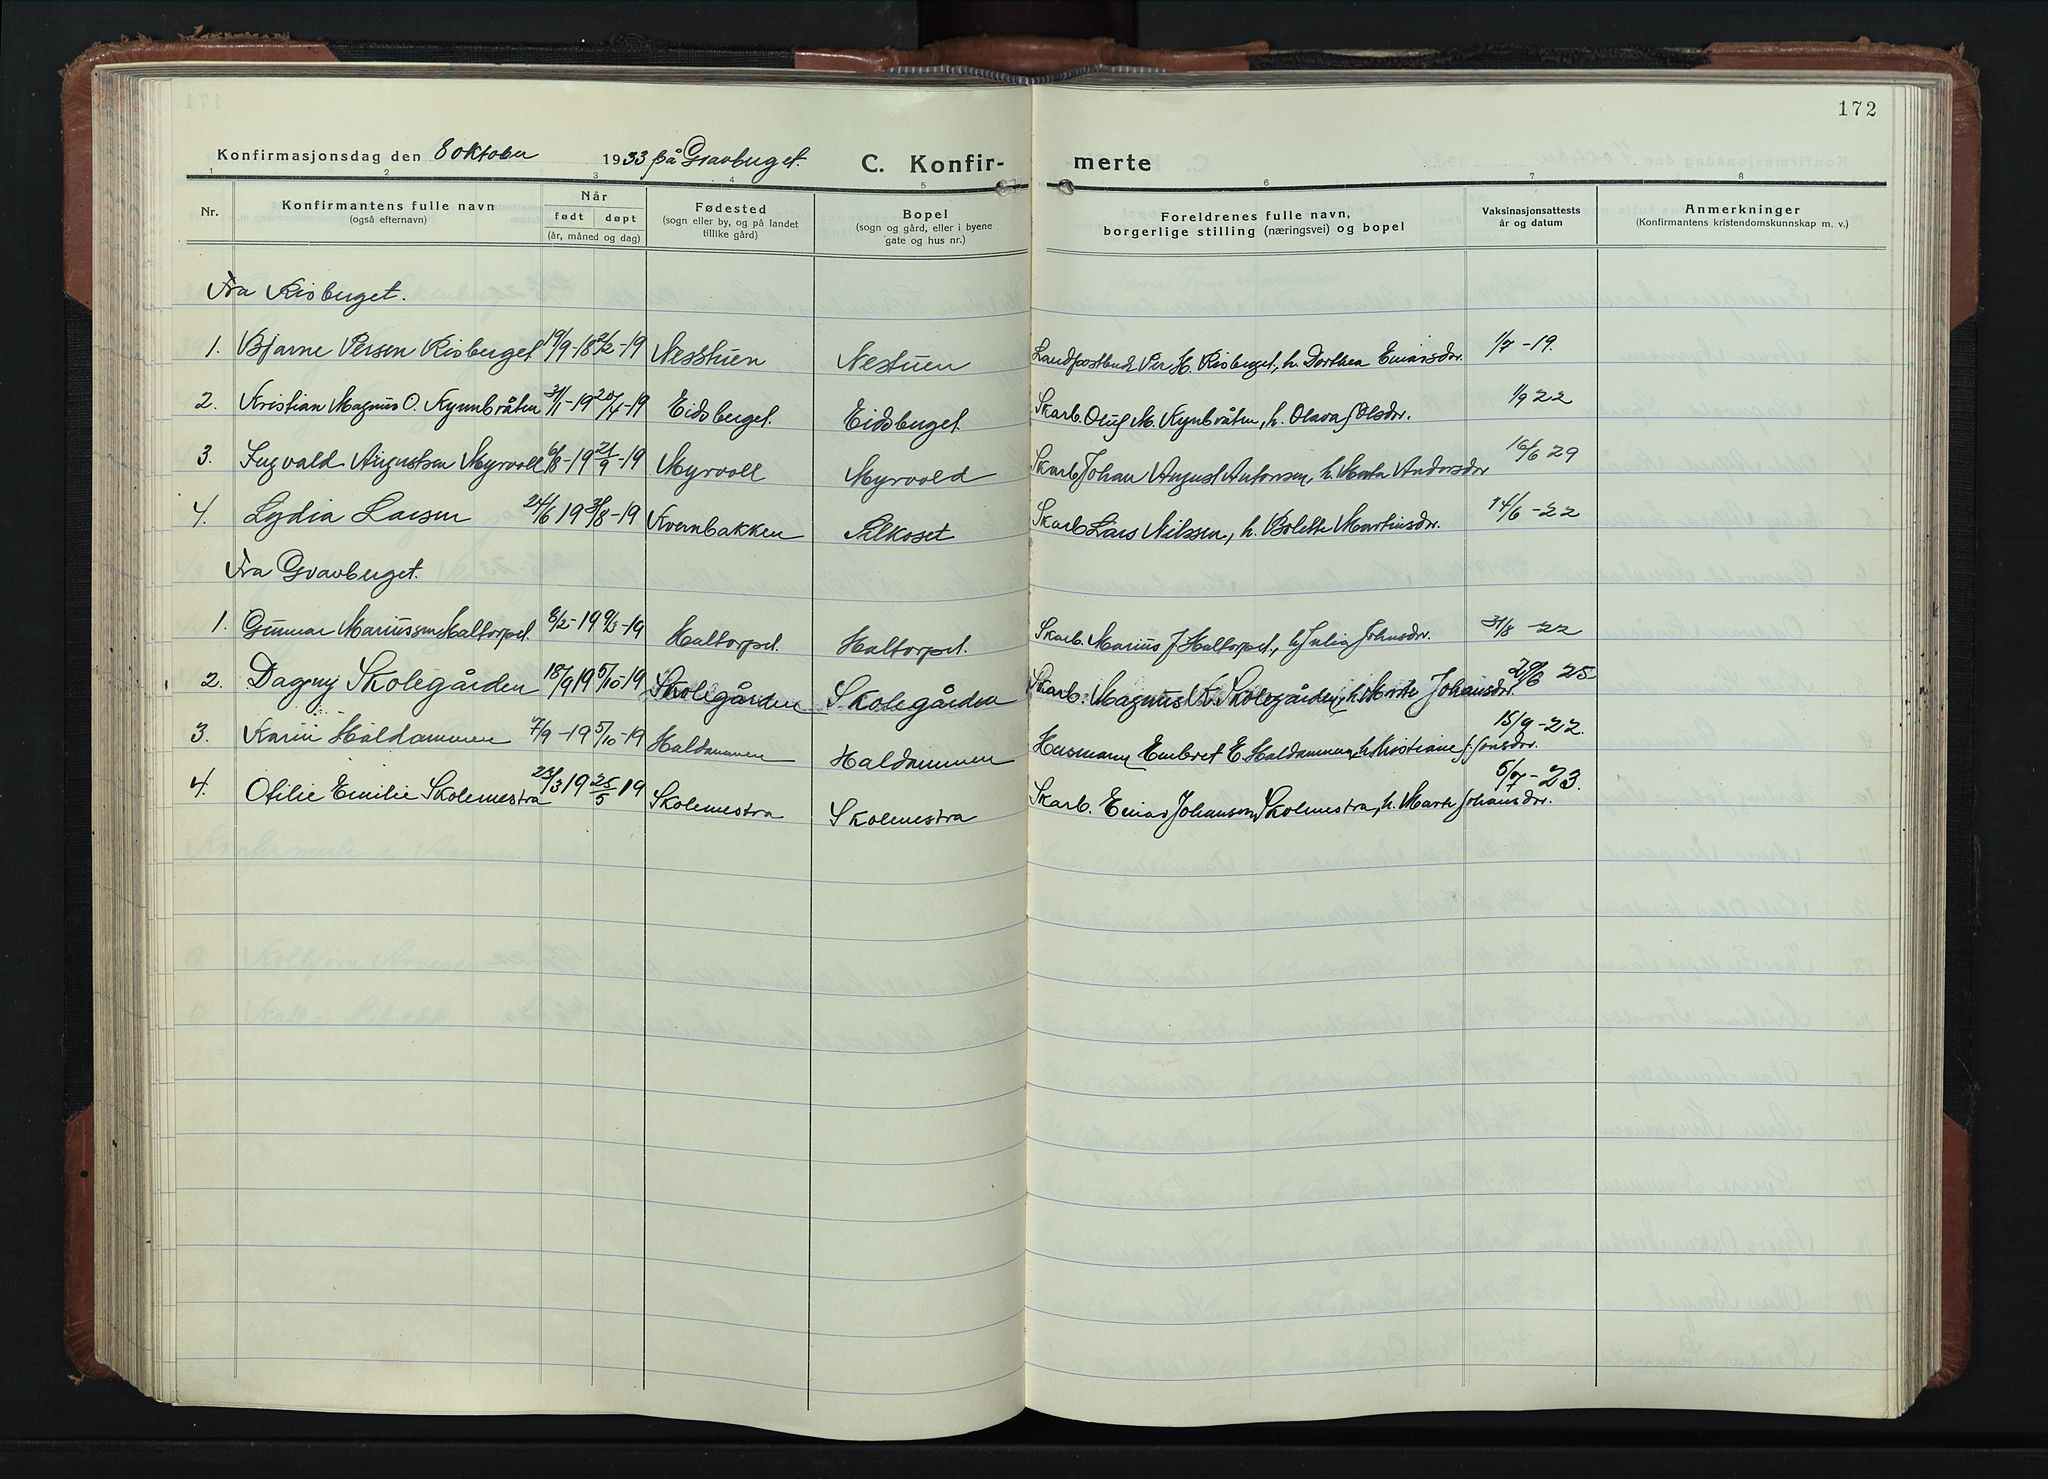 172
Konfirmasjonsdag den 8 oktober 1933 på Gravberget.
C. Konfir-
merte
1 2 3 4 5 6 7 8
Nr.
Konfirmantens fulle navn
(også efternavn)
Når
født døpt
(år, måned og dag)
Fødested
(sogn eller by, og på landet
tillike gård)
Bopel
(sogn og gård, eller i byene
gate og hus nr.)
Foreldrenes fulle navn,
borgerlige stilling (næringsvei) og bopel
Vaksinasjonsattests
år og datum
Anmerkninger
(Konfirmantens kristendomskunnskap m. v.)
Fra Risberget.
1. Bjarne Persen Risberget 19/9-18 2/2-19 Nesstuen Nestuen Landpostbud Per H. Risberget, h. Dorthea Einarsdr. 1/7-19.
2. Kristian Magnus O. Kynnbråten 31/1-19 20/4-19 Eidsberget Eidsberget Skarb. Oluf M. Kynbråten, h. Olava Olsdr. 1/9 22
3. Ingvald Augustsen Myrvoll 6/8-19 21/9-19 Myrvoll Myrvold Skarb Johan August Antonsen, h. Marta Andersdr 16/6 29
4. Lydia Larsen 24/6 19 31/8-19 Kvernbakken Pilkoset Skarb Lars Nilssen, h. Bolette Martinsdr. 14/6-22
Fra Gravberget.
1. Gunnar Mariussen Haltorpet 8/2-19 9/3-19 Haltorpet. Haltorpet. Skarb. Marius J Haltorpet, h Julia Johansdr. 31/8-22
2. Dagny Skolegården 18/9 19 5/10-19 Skolegården Skolegården Skarb. Magnus K. Skolegården, h. Marte Johansdr. 29/6 25
3. Karin Haldammen 7/9-19 5/10-19 Haldammen Haldammen Husmann Embret E. Haldammen, h. Kristiane J. Jonsdr. 15/9-22.
4. Otilie Emilie Skolemestra 23/3 19 25/5 19 Skolemestra Skolemestra Skarb. Einar Johansen Skolmestra, h. Marte Johansdr. 5/7-23.